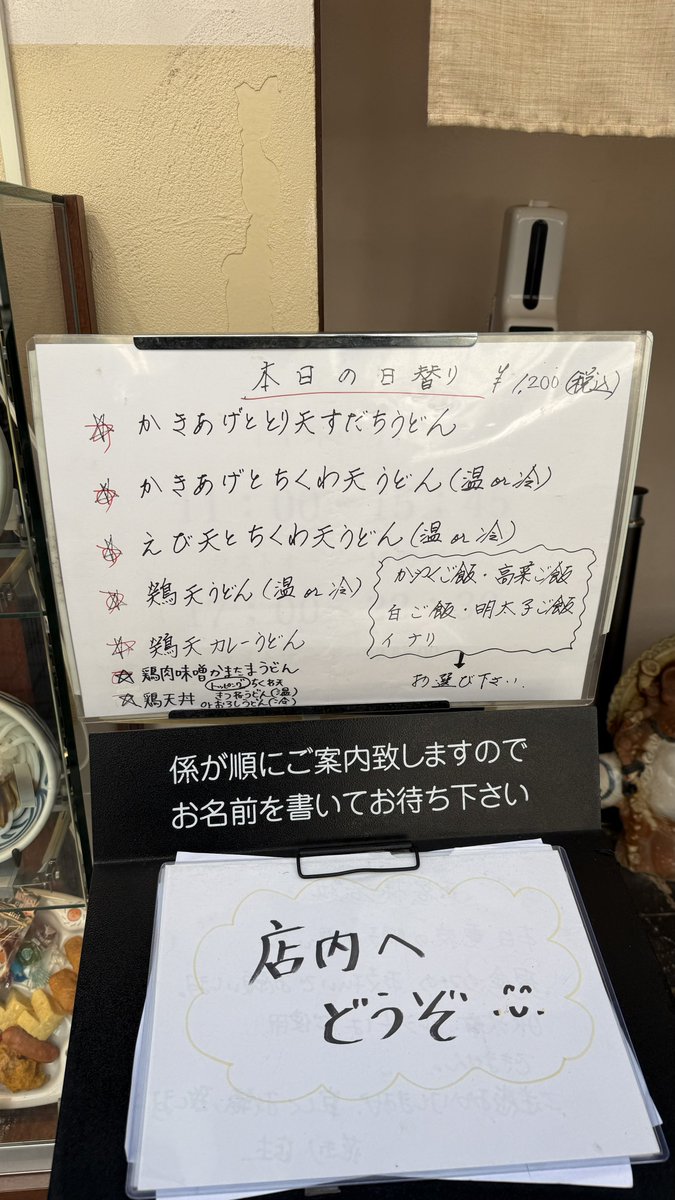 本日の日替り ¥1,200(税込)
☆ かきあげととり天すだちうどん
☆ かきあげとちくわ天うどん(温or冷)
☆ えび天とちくわ天うどん(温or冷)
☆ 鶏天うどん(温or冷)
☆ 鶏天カレーうどん
☆ 鶏肉味噌かまたまうどん
トッピング ちくわ天
☆ 鶏天丼 きつねうどん(温)
orおろしうどん(冷)
かやくご飯・高菜ご飯
白ご飯・明太子ご飯
イナリ
↓
お選び下さい.
係が順にご案内致しますので
お名前を書いてお待ち下さい
店内へ
どうぞ